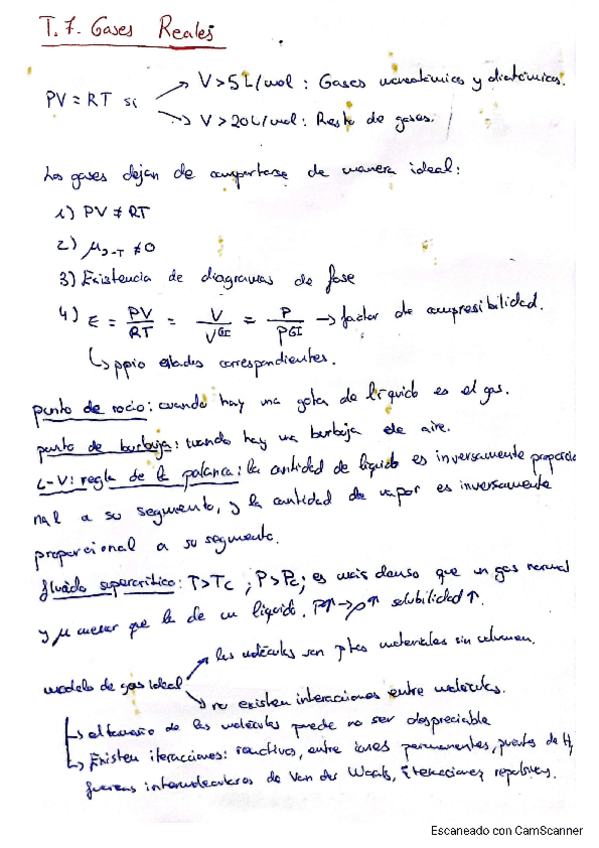 T.7. Gases Reales
V>5L/mol: Gases monoatómicos y diatómicos.
PV = RT si
V>20L/mol: Resto de gases.
Los gases dejan de comportarse de manera ideal:
1) PV ≠ RT
2) μJ-T ≠ 0
3) Existencia de diagramas de fase
4) z = PV/RT = V/V^GI = P/P^GI → factor de compresibilidad.
↳ ppio estados correspondientes.
punto de rocío: cuando hay una gota de líquido es el gas.
punto de burbuja: cuando hay una burbuja de aire.
L-V: regla de la palanca: la cantidad de líquido es inversamente proporcio
nal a su segmento, y la cantidad de vapor es inversamente
proporcional a su segmento.
fluido supercrítico: T>Tc ; P>Pc; es más denso que un gas normal
y μ menor que la de un líquido. P↑→ρ↑ solubilidad↑.
las moléculas son ptos materiales sin volumen.
modelo de gas ideal
no existen interacciones entre moléculas.
↳ el tamaño de las moléculas puede no ser despreciable
↳ Existen iteracciones: reactivos, entre iones permanentes, puentes de H,
fuerzas intermoleculares de Van der Waals, iteracciones repulsivas.
Escaneado con CamScanner